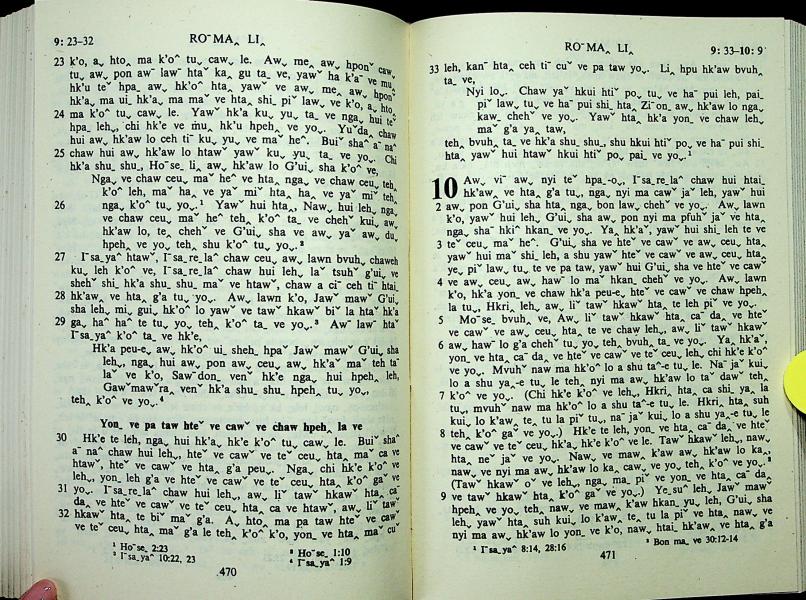 9: 23-32
ROˉ MA˰ LI˰
23 k'o, a˰ hto˰ ma k'oˆ tu˰ caw˰ le. Aw˰ me˰ aw˰ hponˇ caw˰
tu˰ aw˰ pon awˇ lawˇ htaˇ ka˰ gu ta˰ ve, yawˇ ha k'aˇ ve mu˰
hk'u teˇ hpa˰ aw˰ hk'oˇ hta˰ yawˇ ve aw˰ me˰ aw˰ hponˇ
hk'a˰ ma ui˰ hk'a˰ ma maˇ ve hta˰ shi˰ piˇ law˰ ve k'o, a˰ hto˰
24 ma k'oˆ tu˰ caw˰ le. Yawˇ hk'a ku˰ yu˰ ta˰ ve nga˰ hui teˇ
hpa˰ leh˰, chi hk'e ve mu˰ hk'u hpeh˰ ve yo˰. Yuˇ da˰ chaw
hui aw˰ hk'aw lo ceh tiˉ ku˰ yu˰ ve maˇ heˆ. Buiˇ shaˆ aˉ naˆ
25 chaw hui aw˰ hk'aw lo htawˇ yawˇ ku˰ yu˰ ta˰ ve yo˰. Chi
hk'a shu˰ shu˰, Hoˉ se˰ li˰ aw˰ hk'aw lo G'ui˰ sha k'oˆ ve,
Nga˰ ve chaw ceu˰ maˇ heˆ ve hta˰ nga˰ ve chaw ceu˰ teh˰
k'oˆ leh, maˇ ha˰ ve yaˇ miˇ hta˰ ha˰ ve yaˇ miˇ teh˰
26 nga˰ k'oˆ tu˰ yo˰.¹ Yawˇ hui hta˰, Naw˰ hui leh˰ nga˰
ve chaw ceu˰ maˇ heˆ teh˰ k'oˆ ta˰ ve chehˇ kui˰ aw˰
hk'aw lo, te˰ chehˇ ve G'ui˰ sha ve aw˰ yaˇ aw˰ du˰
hpeh˰ ve yo˰ teh˰ shu k'oˆ tu˰ yo˰.²
27 Iˉ sa˰ yaˆ htawˇ, Iˉ sa˰ re˰ laˆ chaw ceu˰ aw˰ lawn bvuh˰ chaweh
ku˰ leh k'oˆ ve, Iˉ sa˰ re˰ laˆ chaw hui leh˰ laˇ tsuhˇ g'ui˰ ve
shehˇ shi˰ hk'a shu˰ shu˰ maˇ ve htawˇ, chaw a ciˉ ceh tiˉ htai˰
28 hk'aw˰ ve hta˰ g'a tu˰ yo˰. Aw˰ lawn k'o, Jawˇ mawˇ G'ui˰
sha leh˰ mi˰ gui˰ hk'oˆ lo yawˇ ve tawˇ hkawˇ biˇ la htaˇ hk'a
29 ga˰ haˆ haˆ te tu˰ yo˰ teh˰ k'oˆ ta˰ ve yo˰.³ Awˇ lawˇ htaˇ
Iˉ sa˰ yaˆ k'oˆ ta˰ ve hk'e,
Hk'a peu-e˰ aw˰ hk'oˆ ui˰ sheh˰ hpaˇ Jawˇ mawˇ G'ui˰ sha
leh˰, nga˰ hui aw˰ pon aw˰ ceu˰ aw˰ hk'aˇ maˇ teh taˆ
laˇ ve k'o, Sawˇ don˰ venˇ hk'e nga˰ hui hpeh˰ leh,
Gawˇ mawˇ ra˰ venˇ hk'a shu˰ shu˰ hpeh˰ tu˰ yo˰,
teh˰ k'oˆ ve yo˰.⁴
Yon˰ ve pa taw hteˇ ve cawˇ ve chaw hpeh˰ la ve
30 Hk'e te leh, nga˰ hui hk'a˰ hk'e k'oˆ tu˰ caw˰ le. Buiˇ shaˆ
aˉ naˆ chaw hui leh˰, hteˇ ve cawˇ ve teˇ ceu˰ hta˰ maˇ ca ve
htawˇ, hteˇ ve cawˇ ve hta˰ g'a peu˰. Nga˰ chi hk'e k'oˆ ve
leh˰, yon˰ leh g'a ve hteˇ ve cawˇ ve teˇ ceu˰ hta˰ k'oˆ gaˇ ve
31 yo˰. Iˉ sa˰ re˰ laˆ chaw hui leh˰, aw˰ liˇ tawˇ hkawˇ hta˰ caˉ
da˰ ve hteˇ ve cawˇ ve teˇ ceu˰ hta˰ ca ve htawˇ, aw˰ liˇ tawˇ
32 hkawˇ hta˰ te biˇ maˇ g'a. A˰ hto˰ ma pa taw hteˇ ve cawˇ
ve teˇ ceu˰ hta˰ maˇ g'a le teh˰ k'oˆ k'o, yon˰ ve hta˰ maˇ cuˇ
¹ Hoˉ se˰ 2:23
² Hoˉ se˰ 1:10
³ Iˉ sa˰ yaˆ 10:22, 23
⁴ Iˉ sa˰ yaˆ 1:9
470
ROˉ MA˰ LI˰
9: 33-10: 9
33 leh, kanˉ hta˰ ceh tiˉ cuˇ ve pa taw yo˰. Li˰ hpu hk'aw bvuh˰
ta˰ ve,
Nyi lo˰. Chaw yaˇ hkui htiˇ po˰ tu˰ ve haˉ pui leh, pai˰
piˇ law˰ tu˰ ve haˉ pui shi˰ hta˰ Ziˉ on˰ aw˰ hk'aw lo nga˰
kaw˰ chehˇ ve yo˰. Yawˇ hta˰ hk'a yon˰ ve chaw leh˰
maˇ g'a ya˰ taw˰
teh˰ bvuh˰ ta˰ ve hk'a shu˰ shu˰, shu hkui htiˇ po˰ ve haˉ pui shi˰
hta˰ yawˇ hui htawˇ hkui htiˇ po˰ pai˰ ve yo˰.¹
10 Aw˰ viˉ aw˰ nyi teˇ hpa˰-o˰, Iˉ sa˰ re˰ laˆ chaw hui htai˰
hk'aw˰ ve hta˰ g'a tu˰, nga˰ nyi ma cawˇ jaˇ leh, yawˇ hui
2 aw˰ pon G'ui˰ sha hta˰ nga˰ bon law˰ chehˇ ve yo˰. Aw˰ lawn
k'o, yawˇ hui leh˰ G'ui˰ sha aw˰ pon nyi ma pfuhˇ jaˇ ve hta˰
nga˰ shaˉ hkiˆ hkan˰ ve yo˰. Ya˰ hk'aˇ, yawˇ hui shi˰ leh te ve
3 teˇ ceu˰ maˇ heˆ. G'ui˰ sha ve hteˇ ve cawˇ ve aw˰ ceu˰ hta˰
yawˇ hui maˇ shi˰ leh, a shu yawˇ hteˇ ve cawˇ ve aw˰ ceu˰ hta˰
ye˰ piˇ law˰ tu˰ te ve pa taw, yawˇ hui G'ui˰ sha ve hteˇ ve cawˇ
4 ve aw˰ ceu˰ aw˰ hawˇ lo maˇ hkan˰ chehˇ ve yo˰. Aw˰ lawn
k'o, hk'a yon˰ ve chaw hk'a peu-e˰ hteˇ ve cawˇ ve chaw hpeh˰
la tu˰, Hkri˰ leh˰ aw˰ liˇ tawˇ hkawˇ hta˰ te leh piˇ ve yo˰.
5 Moˉ se˰ bvuh˰ ve, Aw˰ liˇ tawˇ hkawˇ hta˰ caˉ da˰ ve hteˇ
ve cawˇ ve aw˰ ceu˰ hta˰ te ve chaw leh˰, aw˰ liˇ tawˇ hkawˇ
6 aw˰ hawˇ lo g'a chehˇ tu˰ yo˰ teh˰ bvuh˰ ta˰ ve yo˰. Ya˰ hk'aˇ,
yon˰ ve hta˰ caˉ da˰ ve hteˇ ve cawˇ ve teˇ ceu˰ leh˰, chi hk'e k'oˆ
ve yo˰. Mvuhˇ naw ma hk'oˆ lo a shu taˆ-e tu˰ le. Naˉ jaˇ kui˰
lo a shu ya˰-e tu˰ le teh˰ nyi ma aw˰ hk'aw lo taˇ dawˇ teh˰
7 k'oˆ ve yo˰. (Chi hk'e k'oˆ ve leh˰, Hkri˰ hta˰ ca shi˰ ya˰ la
tu˰, mvuhˇ naw ma hk'oˆ lo a shu taˆ-e tu˰ le. Hkri˰ hta˰ suh
kui˰ lo k'aw˰ te˰ tu la piˇ tu˰, naˉ jaˇ kui˰ lo a shu ya˰-e tu˰ le
8 teh˰ k'oˆ gaˇ ve yo˰.) Hk'e te leh˰ yon˰ ve hta˰ caˉ da˰ ve hteˇ
ve cawˇ ve teˇ ceu˰ hk'a˰ hk'e k'oˆ ve le. Tawˇ hkawˇ leh˰, naw˰
hta˰ neˇ jaˇ ve yo˰. Naw˰ ve maw˰ k'aw aw˰ hk'aw lo ka˰,
naw˰ ve nyi ma aw˰ hk'aw lo ka˰ caw˰ ve yo˰ teh˰ k'oˆ ve yo˰.²
(Tawˇ hkawˇ oˇ ve leh˰, nga˰ ma˰ piˇ ve yon˰ ve hta˰ caˉ da˰
9 ve tawˇ hkawˇ hta˰ k'oˆ gaˇ ve yo˰.) Ye˰ suˆ leh˰ Jawˇ mawˇ
hpeh˰ ve yo˰ teh˰ naw˰ ve maw˰ k'aw hkan˰ yu˰ leh, G'ui˰ sha
leh˰ yawˇ hta˰ suh kui˰ lo k'aw˰ te˰ tu la piˇ ve hta˰ naw˰ ve
nyi ma aw˰ hk'aw lo yon˰ ve k'o, naw˰ htai˰ hk'aw˰ ve hta˰ g'a
¹ Iˉ sa˰ yaˆ 8:14, 28:16
² Bon ma˰ ve 30:12-14
471